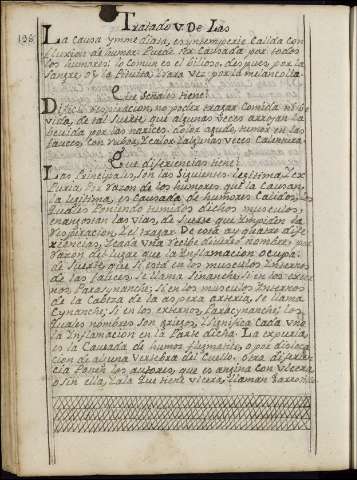 Tratado V. De Las
136
La causa ymmediata, es yntemperie calida con
fluxion de humor. Puede ser causada por todos
los humores; lo comun es el bilioso, despues por la
sangre, oy la Pituita, rara vez por la melancolia.
Que señales tiene?
Dificil respiracion, no poder tragar comida ni be
vida, de tal suerte, que algunas veces arrojan la
bevida por las narices, dolor agudo, tumor en las
fauces, con rubor, y calor, y algunas veces calentura.
Que diferiencias tiene?
Las Principales, son las siguientes: legitima, y ex
puria. Por razon de los humores que la causan.
la legitima, es causada de humores calidos, los
quales poniendo tumidos dichos musculos,
enangostan las vias, de suerte que impiden la
respiracion, y el tragar. De esta ay quatro dife
riencias, y cada una recibe diverso nombre, por
razon del lugar que la Inflamacion ocupa:
de suerte, que si está en los musculos Internos
de las fauces, se llama Sinanche; si en los exter
nos, Parasynanche; si en los musculos Internos
de la Cabeza de la aspera arteria, se llama
Cynanche; si en los externos, Paracynanche; los
quales nombres son griegos, y significa cada uno
la Inflamacion en la Parte dicha. La expuria,
es la causada de humor flegmatico, o por disloca
cion de alguna vertebra del Cuello. otra diferien
cia Ponen los autores, que es angina con ulcera,
o sin ella, y a la que tiene ulcera, llaman Garrotillo